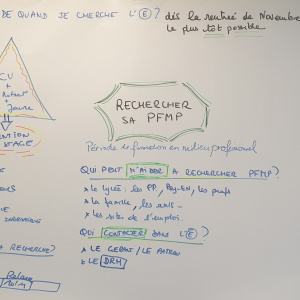 DE QUAND JE CHERCHE L'(E)? dès la rentrée de Novembre
le plus tôt possible
CV
+
+
Jaune
RECHERCHER
SA PFMP
STAGE
Période de formation en milieu professionnel
QUI PEUT M'AIDER A RECHERCHER PFMP?
* le lycée: les PP, les profs
* la famille, les amis...
* les sites de l'emploi.
QUI CONTACTER DANS L'(E)?
A RECHERCHE?
* LE GERANT / LE PATRON
* LE DRH